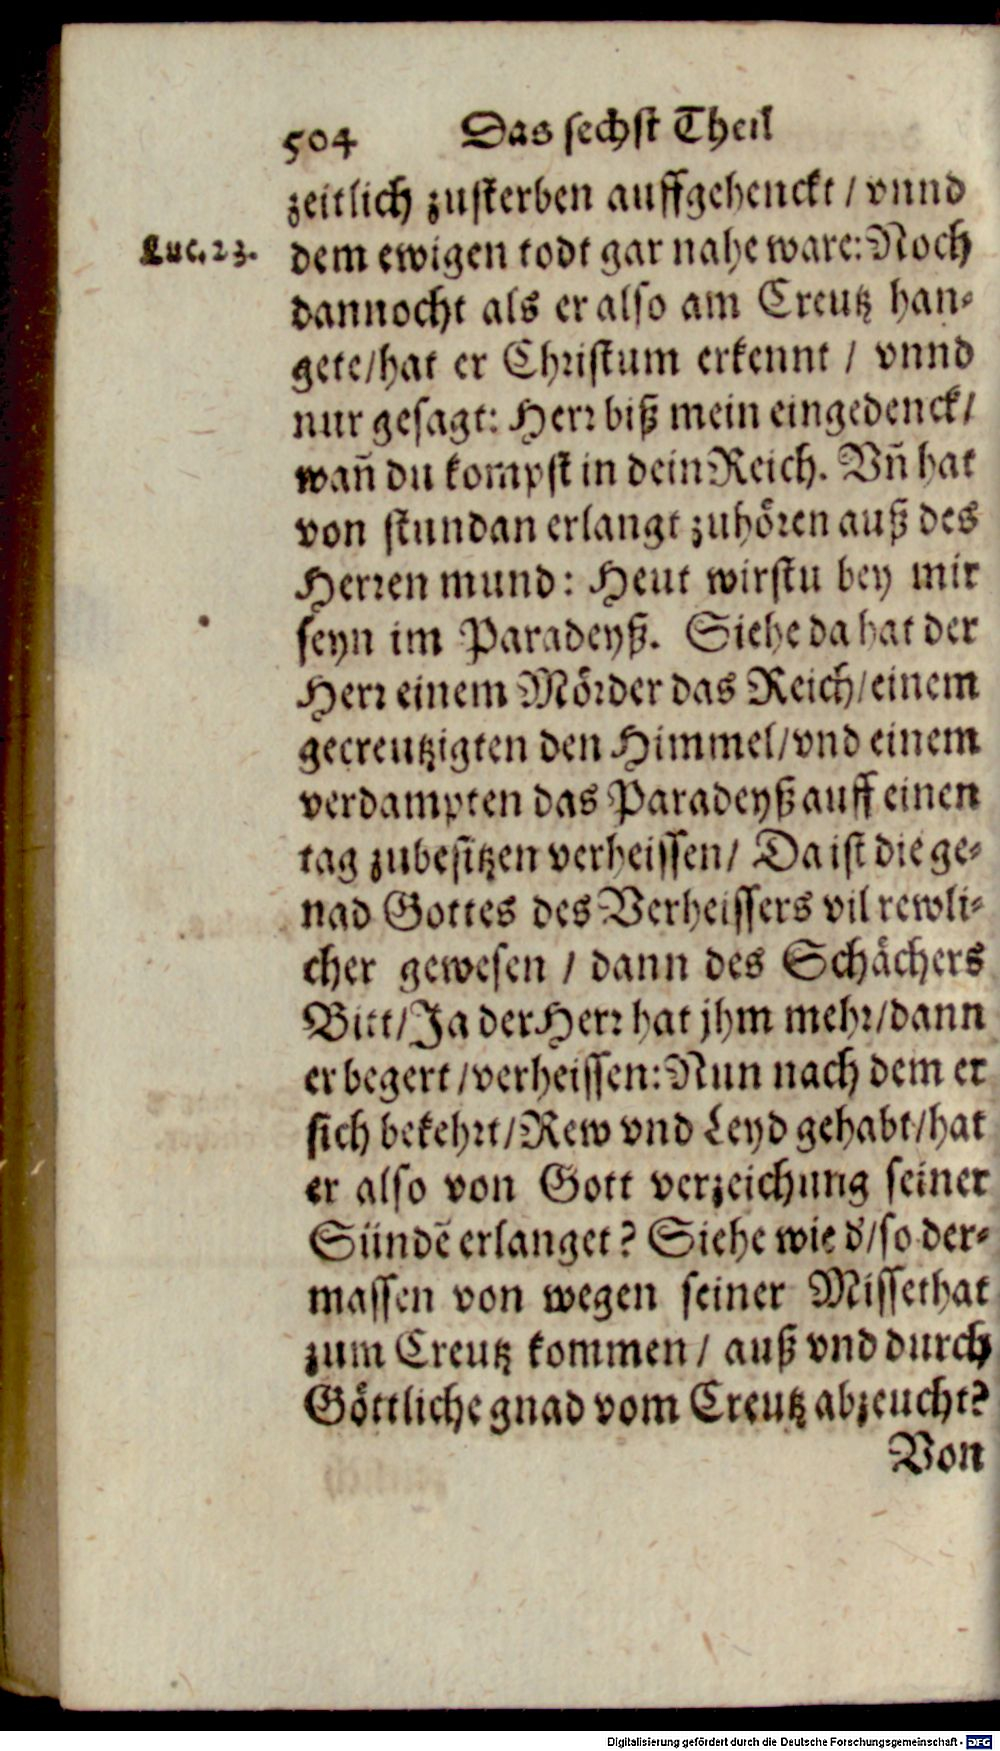 504 Das sechst Theil
zeitlich zusterben auffgehenckt / vnnd
Luc. 23.
dem ewigen todt gar nahe ware: Noch
dannocht als er also am Creutz han-
gete/hat er Christum erkennt / vnnd
nur gesagt: Herr biß mein eingedenck/
wañ du kompst in dein Reich. Vñ hat
von stundan erlangt zuhören auß des
Herren mund: Heut wirstu bey mir
seyn im Paradeyß. Siehe da hat der
Herr einem Mörder das Reich/einem
gecreutzigten den Himmel/vnd einem
verdampten das Paradeyß auff einen
tag zubesitzen verheissen/ Da ist die ge-
nad Gottes des Verheissers vil rewli-
cher gewesen / dann des Schächers
Bitt/Ja der Herr hat jhm mehr/dann
er begert/verheissen: Nun nach dem er
sich bekehrt/Rew vnd Leyd gehabt/hat
er also von Gott verzeichung seiner
Sündẽ erlanget? Siehe wie d'/so der-
massen von wegen seiner Missethat
zum Creutz kommen/ auß vnd durch
Göttliche gnad vom Creutz abzeucht?
Von
Digitalisierung gefördert durch die Deutsche Forschungsgemeinschaft - DFG